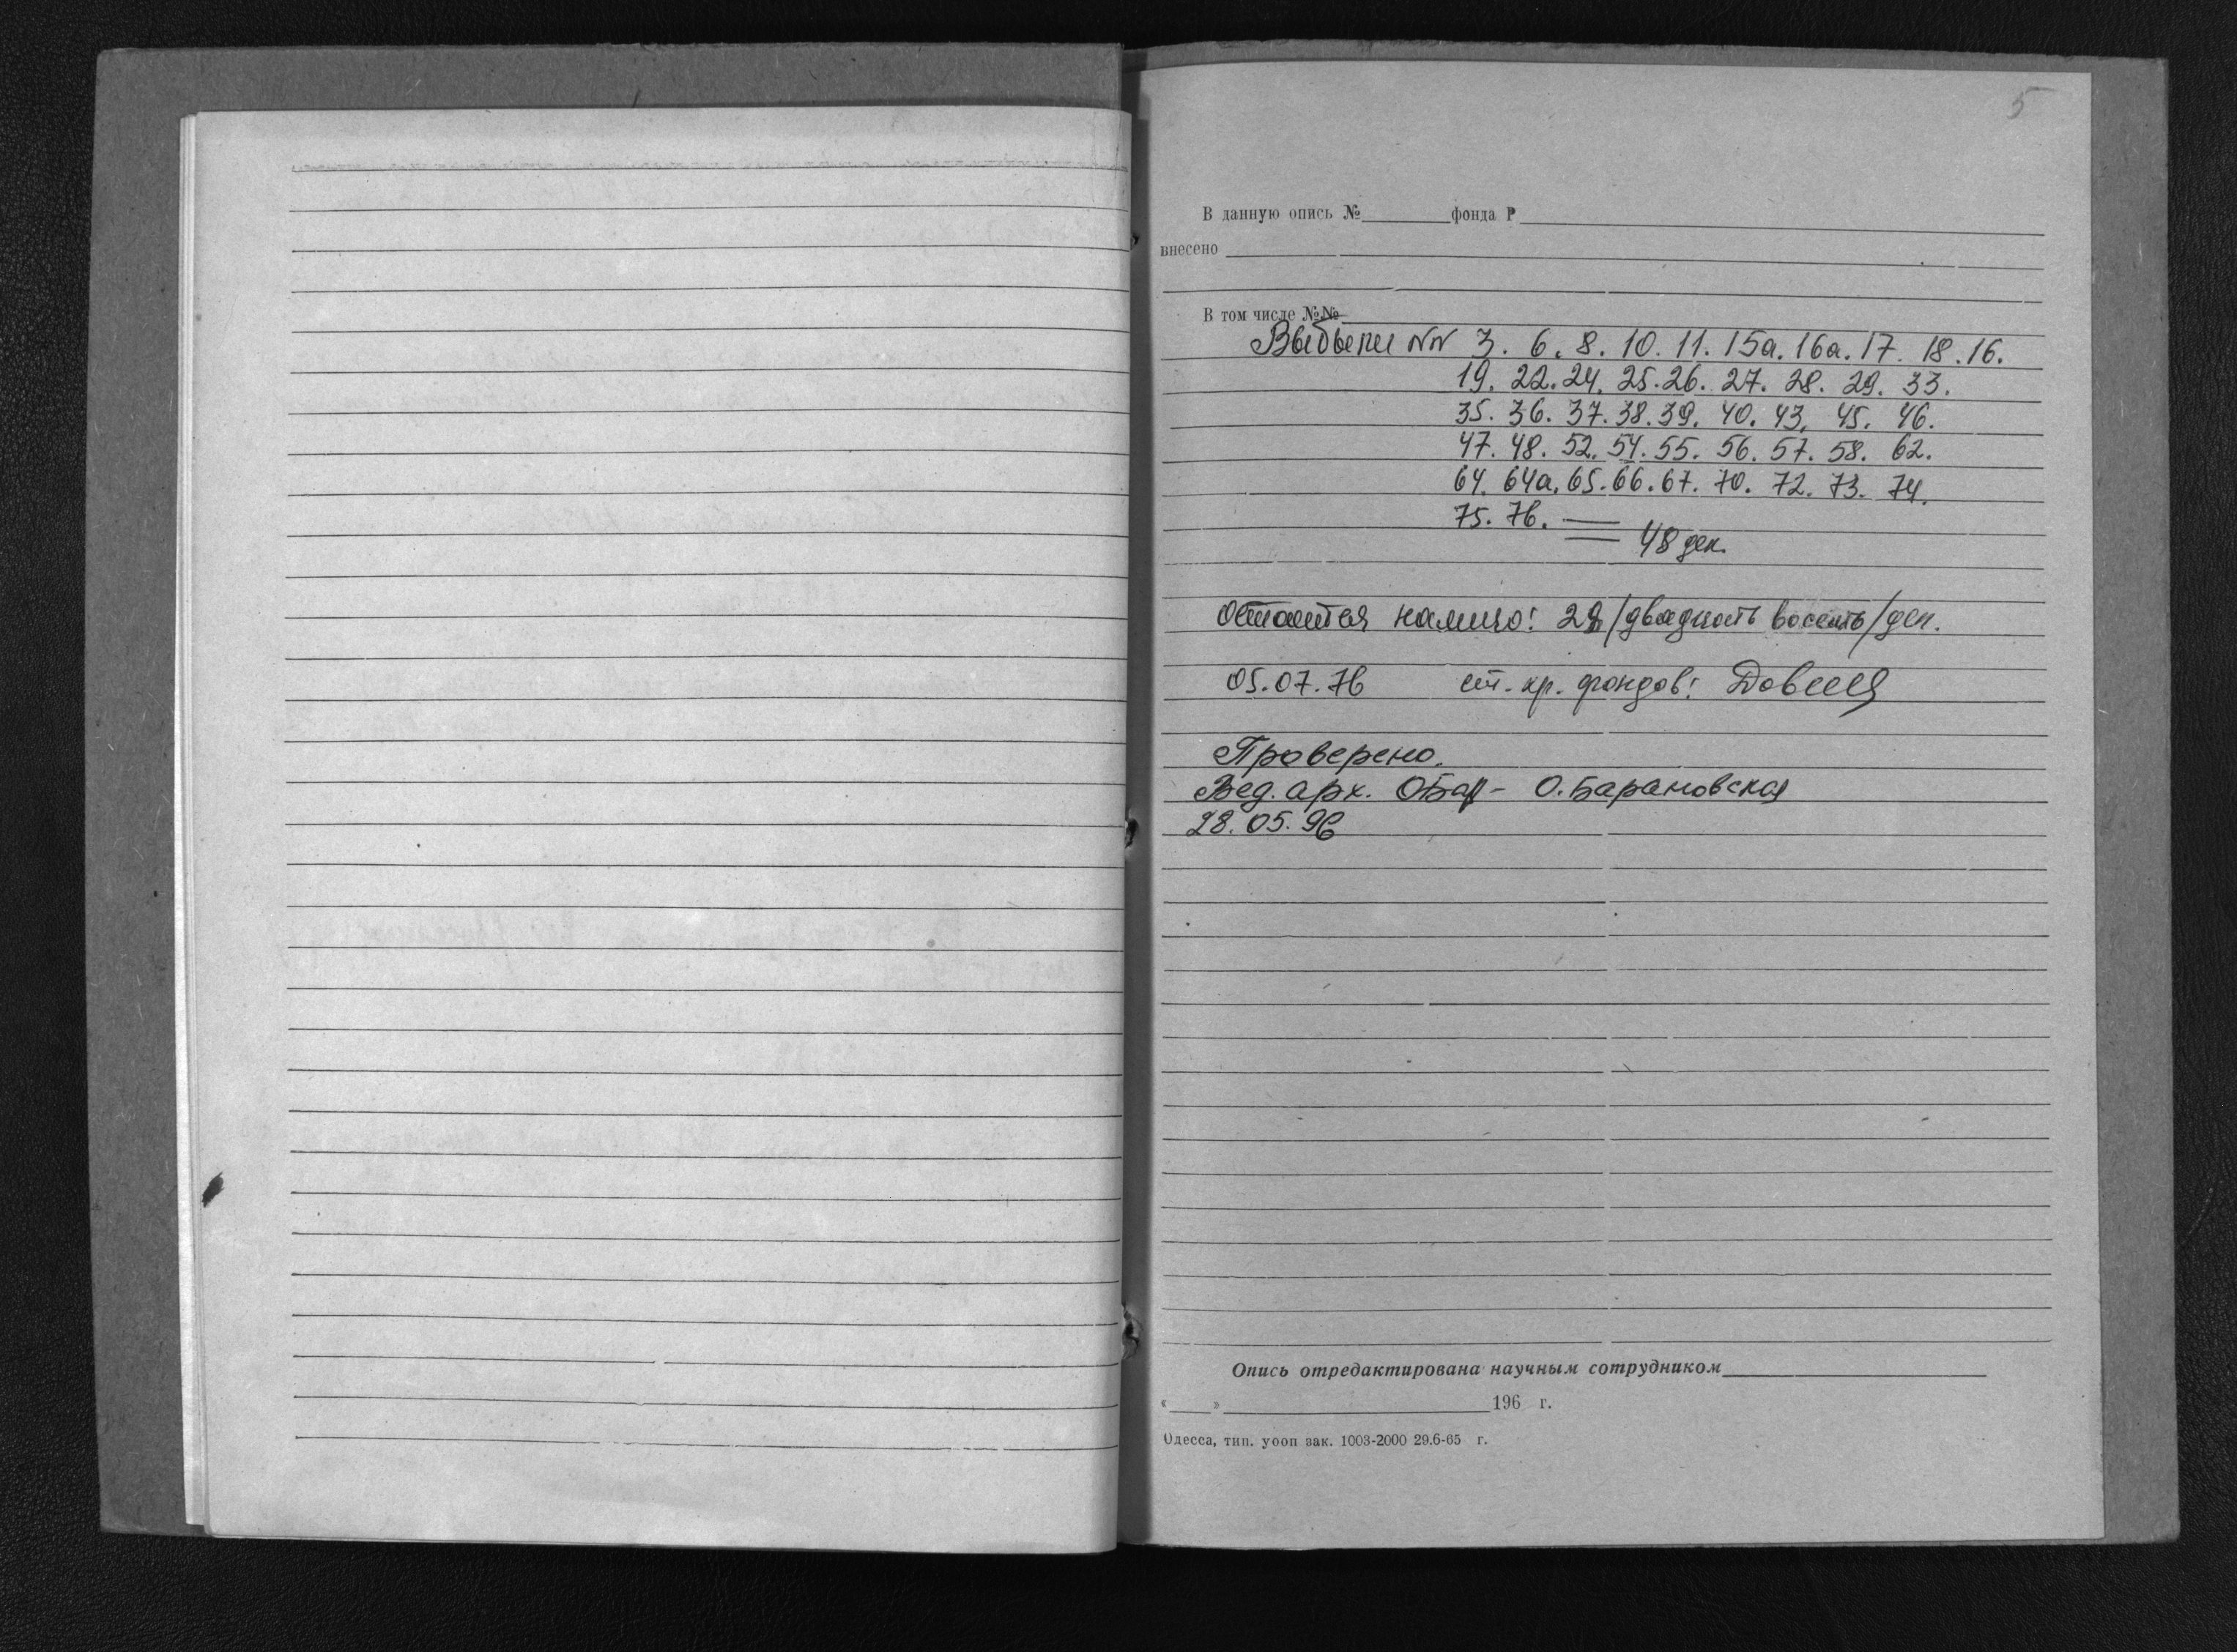 5
В данную опись №________фонда Р
внесено
В том числе №№
Выбыли NN 3. 6. 8. 10. 11. 15а. 16а. 17. 18. 16.
19. 22. 24. 25. 26. 27. 28. 29. 33.
35. 36. 37. 38. 39. 40. 43. 45. 46.
47. 48. 52. 54. 55. 56. 57. 58. 62.
64. 64а. 65. 66. 67. 70. 72. 73. 74.
75. 76. = 48 дел.
Остаются налицо: 28 /двадцать восемь/ дел.
05.07.76 ст. хр. фондов:
Проверено.
Вед. арх. ОБар- О. Барановская
28.05.96
Опись отредактирована научным сотрудником
«____»____________________196 г.
Одесса, тип. уооп зак. 1003-2000 29.6-65 г.